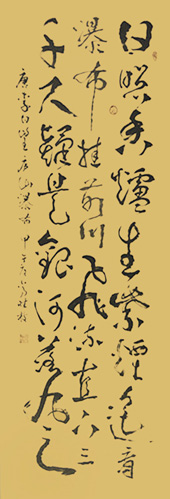 日照香爐生紫煙遙看
瀑布挂前川飛流直下三
千尺疑是銀河落九天
唐李白望庐山瀑布 甲午